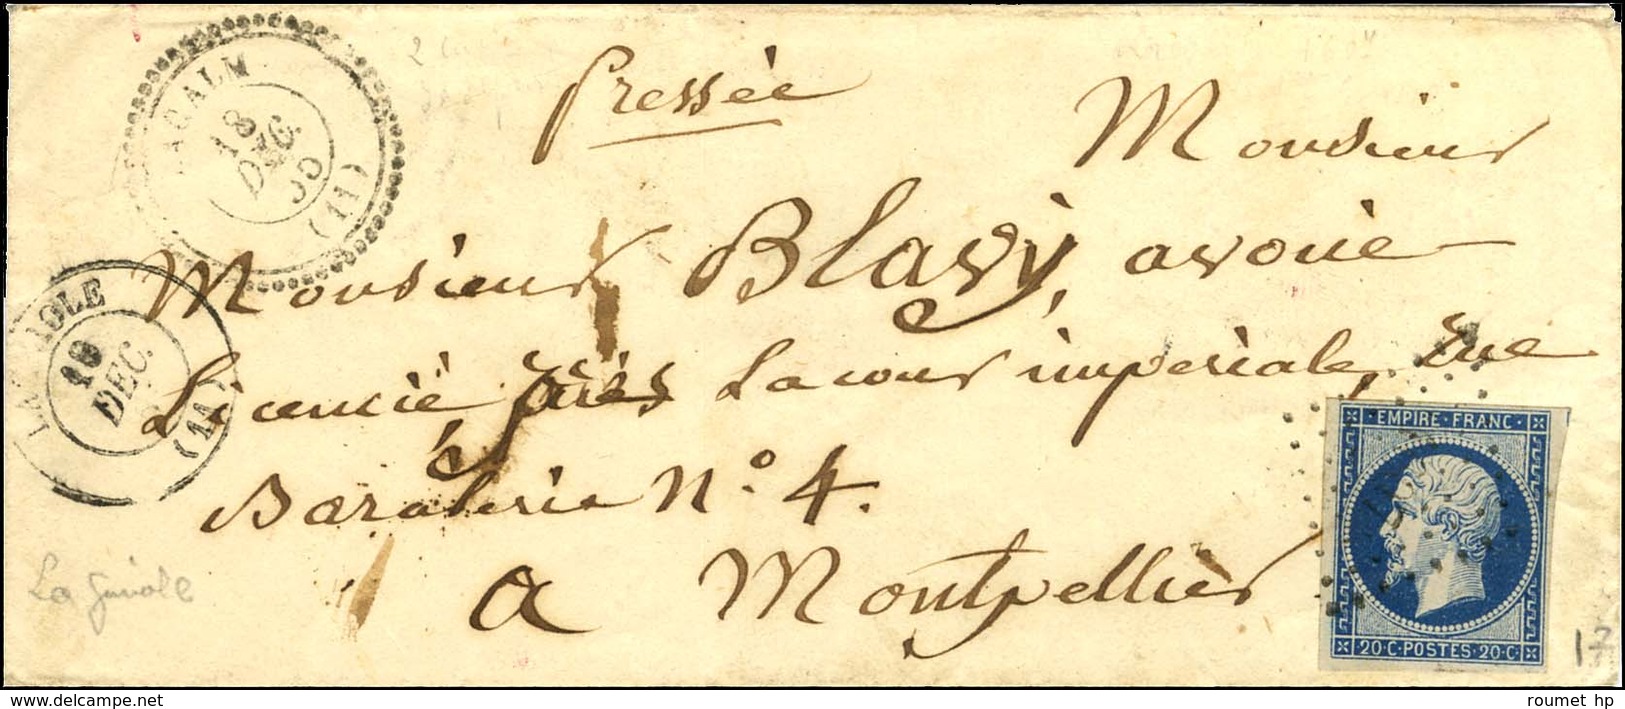 Pressée
Monsieur
Monsieur Blavy, avoué
Licencié près La cour impériale, Rue
Baralerie N.° 4.
a Montpellier
LACALM
18
DEC.
55
(11)
19
DEC.
(11)
La Guiole
EMPIRE·FRANC·
20·C·POSTES·20·C·
17
roumet hp